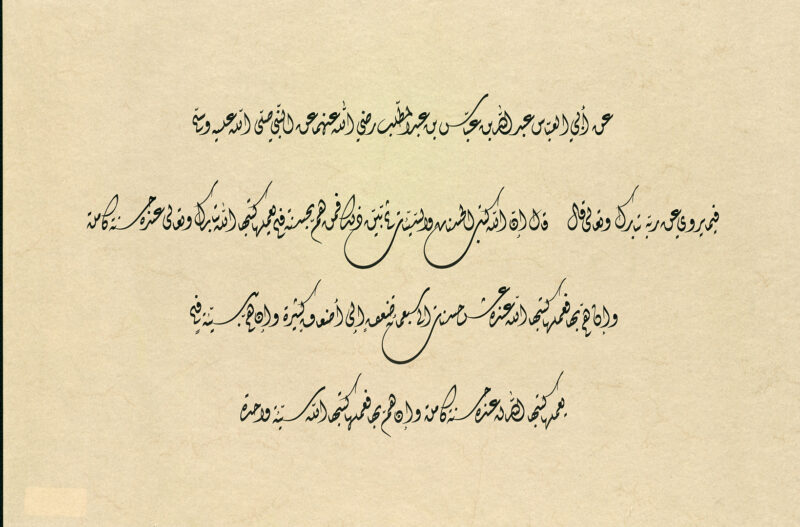 عن أبي العبّاس عبد اللّه بن عبّاس بن عبد المطّلب رضي اللّه عنهما عن النّبيّ صلّى اللّه عليه وسلّم
فيما يروي عن ربّه تبارك وتعالى قال قال إنّ اللّه كتب الحسنات والسّيّئات ثمّ بيّن ذلك فمن همّ بحسنة فلم يعملها كتبها اللّه تبارك وتعالى عنده حسنة كاملة
وإن همّ بها فعملها كتبها اللّه عنده عشر حسنات إلى سبعمائة ضعف إلى أضعاف كثيرة وإن همّ بسيّئة فلم
يعملها كتبها اللّه عنده حسنة كاملة وإن همّ بها فعملها كتبها اللّه سيّئة واحدة